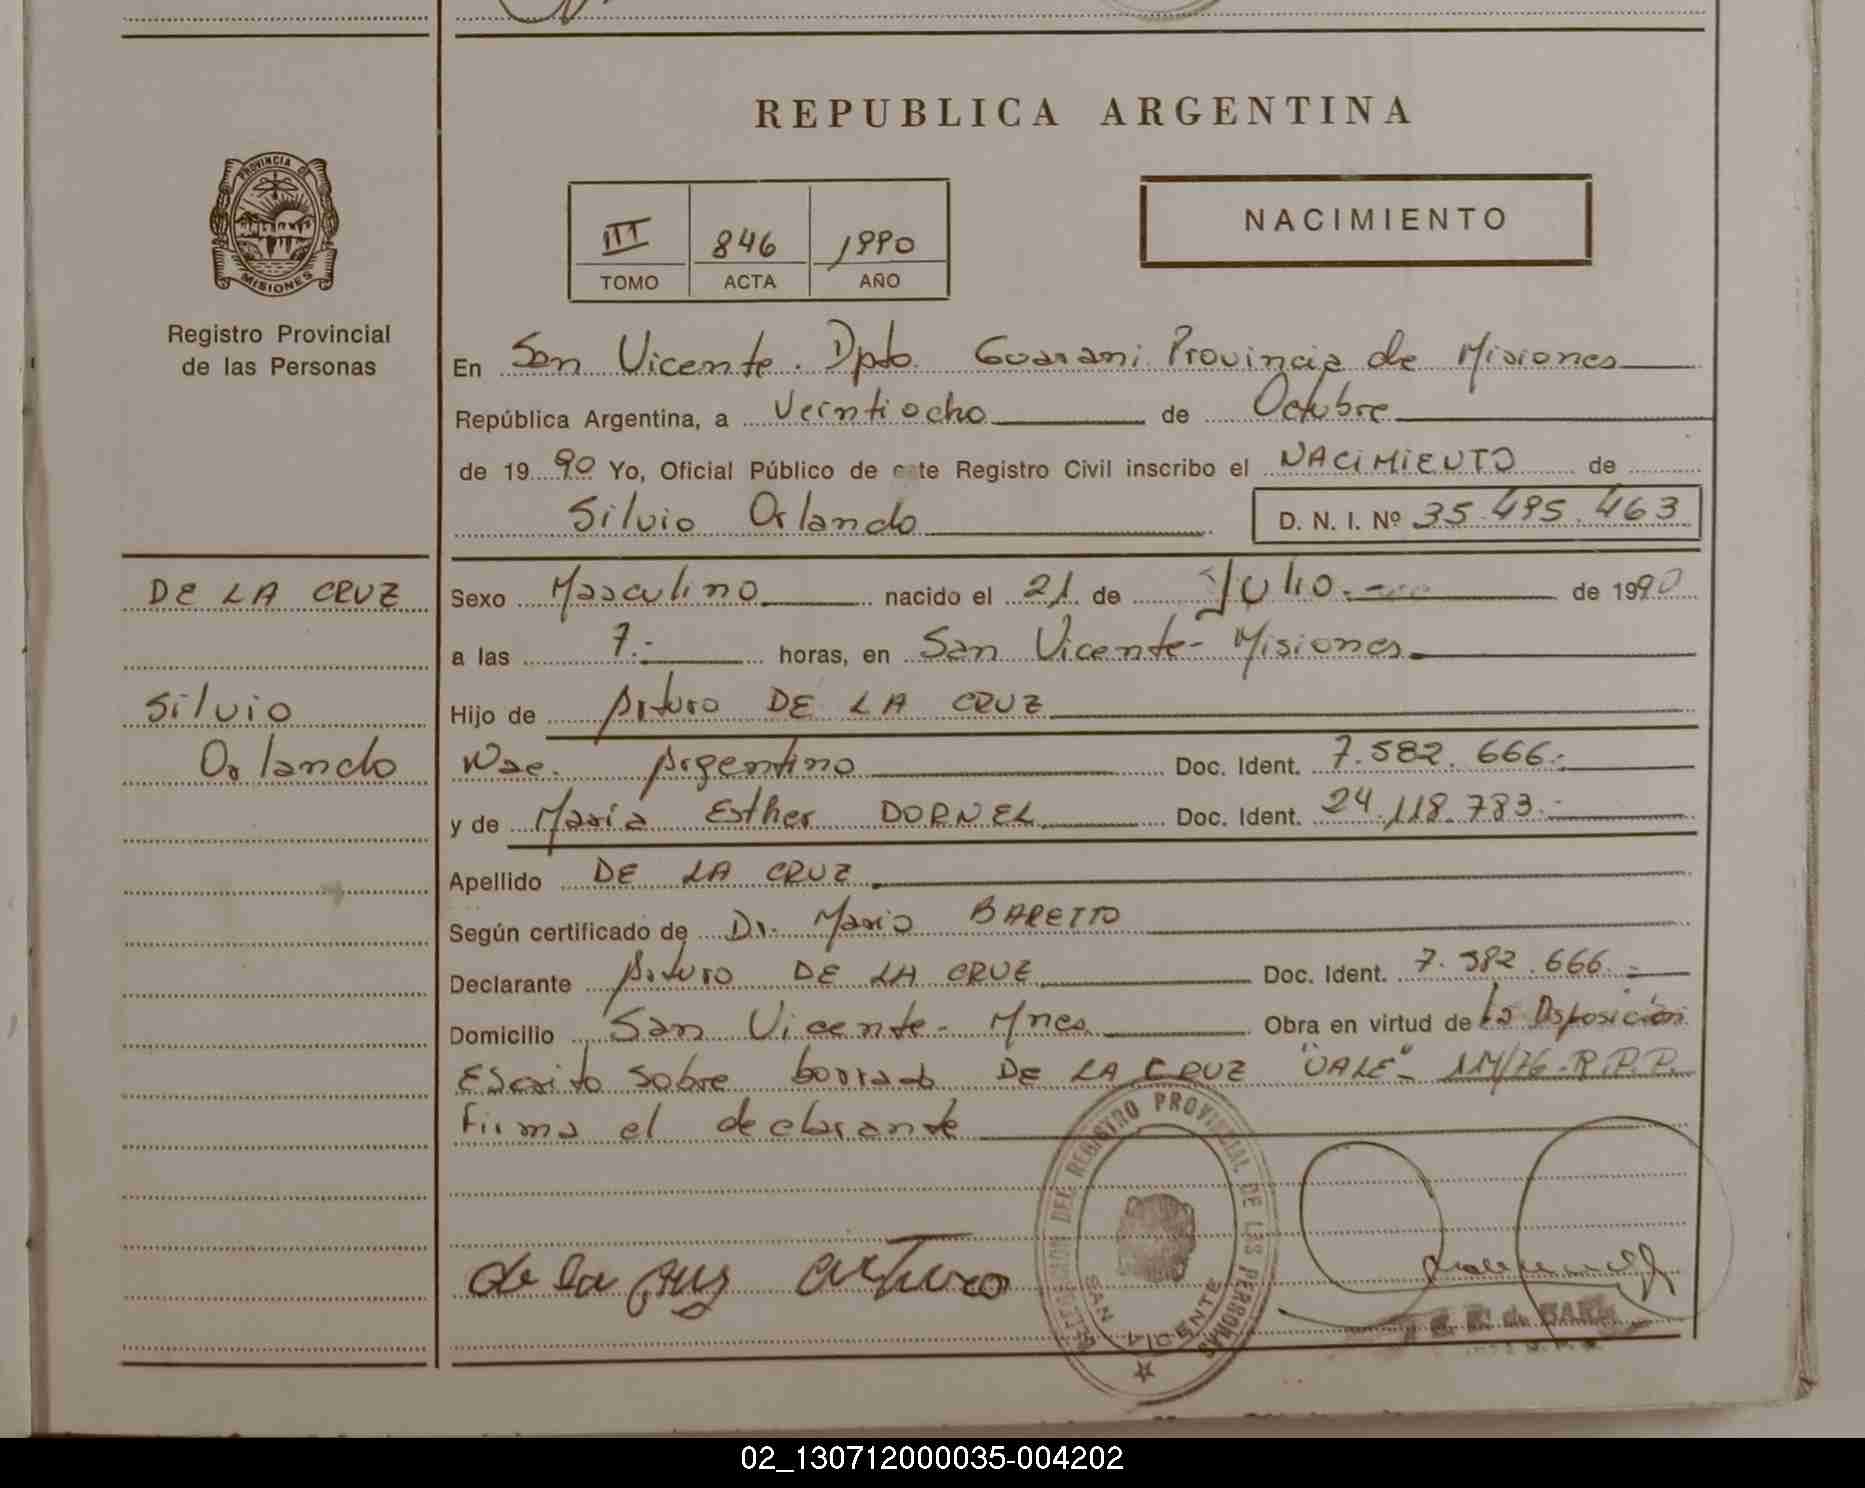 REPUBLICA ARGENTINA
PROVINCIA DE
MISIONES
Registro Provincial
de las Personas
III 846 1990
TOMO ACTA AÑO
NACIMIENTO
En San Vicente. Dpto. Guarani. Provincia de Misiones
República Argentina, a Veintiocho de Octubre
de 19 90 Yo, Oficial Público de este Registro Civil inscribo el NACIMIENTO de
Silvio Orlando D. N. I. Nº 35.495.463
DE LA CRUZ
Silvio
Orlando
Sexo Masculino nacido el 21 de Julio.- de 1990
a las 7.- horas, en San Vicente- Misiones
Hijo de Arturo DE LA CRUZ
Nac. Argentino Doc. Ident. 7.582.666.-
y de Maria Esther DORNEL Doc. Ident. 24.118.783.-
Apellido DE LA CRUZ
Según certificado de Dr. Mario BARETTO
Declarante Arturo DE LA CRUZ Doc. Ident. 7.582.666.-
Domicilio San Vicente- Mnes Obra en virtud de la Disposición
Escrito sobre borrado DE LA CRUZ "VALE"- 114/76-R.P.P.
Firma el declarante
de la Cruz Arturo
DEL REGISTRO PROVINCIAL DE LAS PERSONAS
SAN VICENTE
02_130712000035-004202